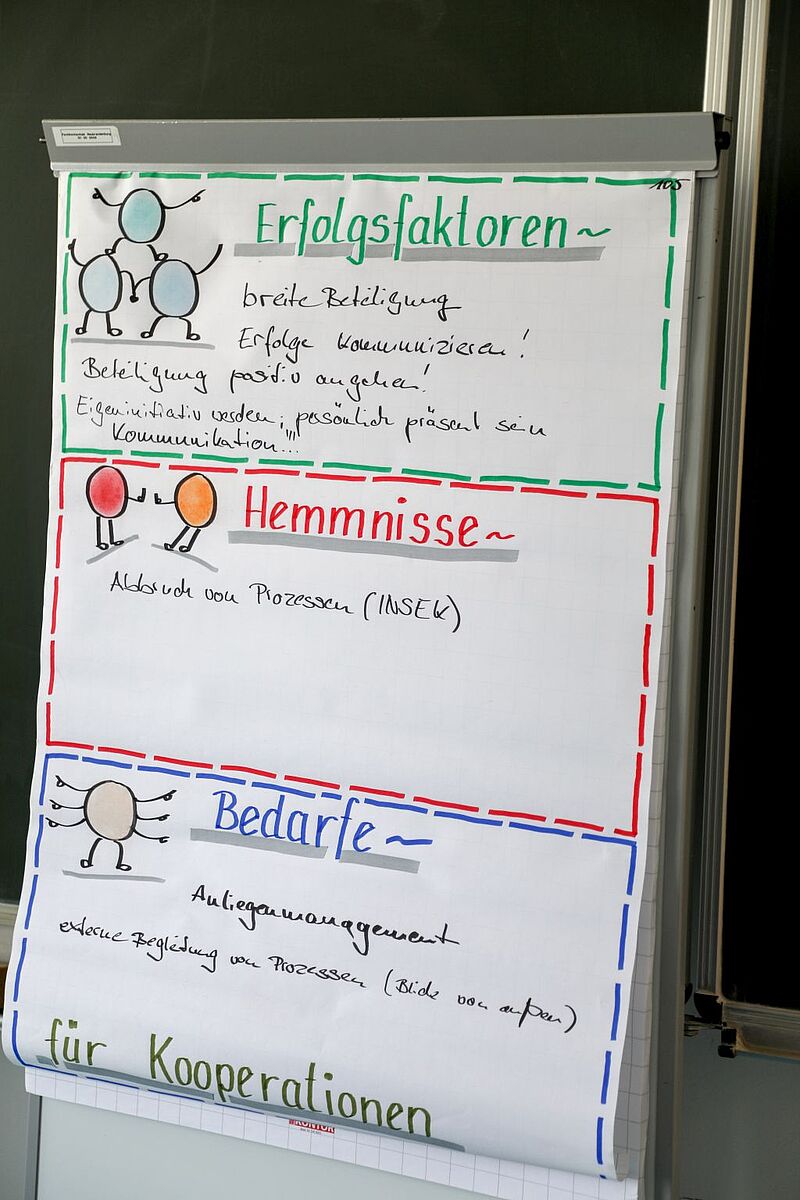 105
Erfolgsfaktoren~
breite Beteiligung
Erfolge kommunizieren!
Beteiligung positiv angehen!
Eigeninitiativ werden, persönlich präsent sein
Kommunikation!!!
Hemmnisse~
Abbruch von Prozessen (INSEK)
Bedarfe~
Anliegenmanagement
externe Begleitung von Prozessen (Blick von außen)
für Kooperationen